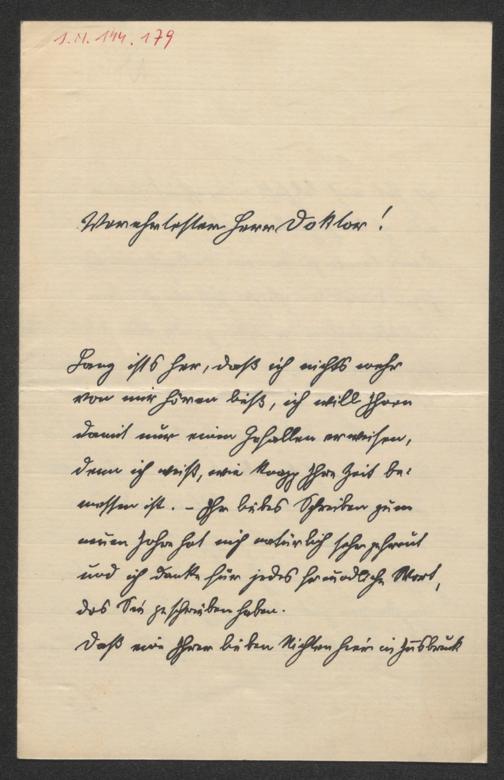 1.N. 144.179
Verehrtester Herr Doktor!
Lang ists her, daß ich nichts mehr
von mir hören ließ, ich will Ihnen
damit nur einen Gefallen erweisen,
denn ich weiß, wie knapp Ihre Zeit be-
messen ist. – Ihr liebes Schreiben zum
neuen Jahre hat mich natürlich sehr gefreut
und ich danke für jedes freundliche Wort,
das Sie geschrieben haben.
Daß eine Ihrer lieben Nichten hier in Innsbruck